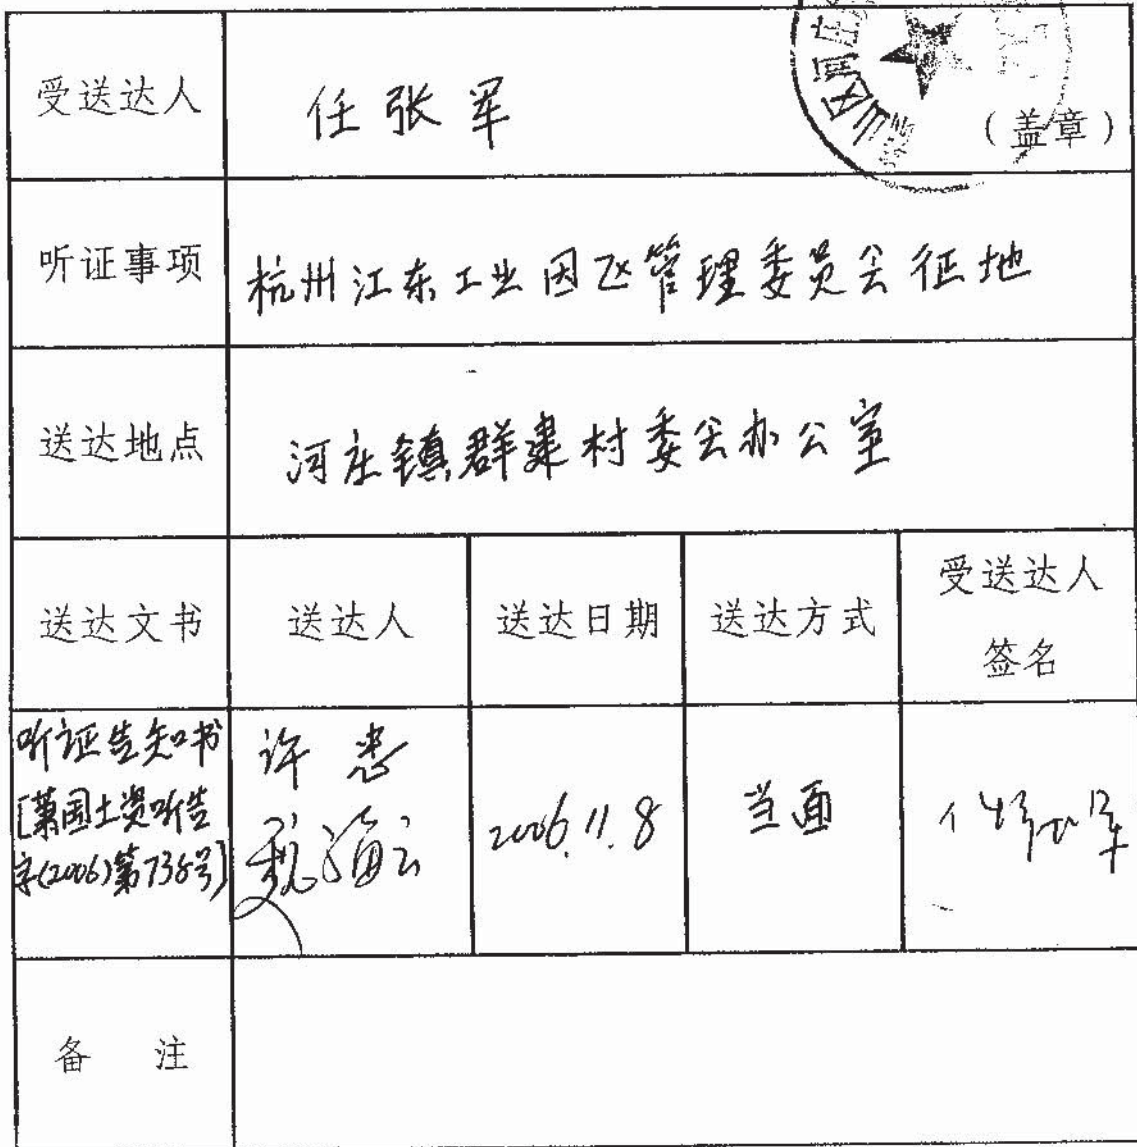 受送达人
任张军
（盖章）
听证事项
杭州江东工业园区管理委员会征地
送达地点
河庄镇群建村委会办公室
送达文书
送达人
送达日期
送达方式
受送达人
签名
听证告知书
[萧国土资听告
字(2006)第738号]
许
海云
2006.11.8
当面
备 注